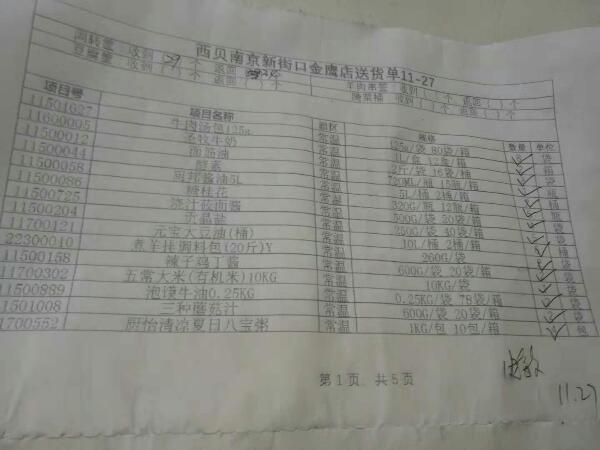 西贝南京新街口金鹰店送货单11-27
周转筐:收到( 个 退回( )个 羊肉串签:收到( )个
豆腐筐:收到( )个 退回( )个 腌菜桶 收到( )个 退回( )个
项目号 项目名称 温区 规格 数量 单位
11501627 牛肉汤包125g 常温 125g/袋 80袋/箱 袋
11600005 圣牧牛奶 常温 1L/盒 12盒/箱 箱
11500012 面筋油 常温 2斤/袋 16袋/箱 袋
11500044 酵素 常温 720ML/瓶 15瓶/箱 瓶
11500058 厨邦酱油5L 常温 5L/桶 2桶/箱 桶
11500086 糖桂花 常温 320G/瓶 12瓶/箱 瓶
11500725 浇汁莜面酱 常温 500G/袋 20袋/箱 袋
11500204 常温 250G/袋 40袋/箱 袋
11700121 元宝大豆油(桶) 常温 10l/桶 2桶/箱 桶
22300010 煮羊排调料包(20斤)Y 常温 260G/袋 袋
11500158 辣子鸡丁酱 常温 600G/袋 20袋/箱 袋
11700302 五常大米(有机米)10KG 常温 10KG/袋 袋
11500889 泡馍牛油0.25KG 常温 0.25KG/袋 78袋/箱 袋
11501008 三种蘑菇汁 常温 600G/袋 20袋/箱 袋
11700552 厨怡清凉夏日八宝粥 常温 1KG/包 10包/箱 包
第1页,共5页
11.27